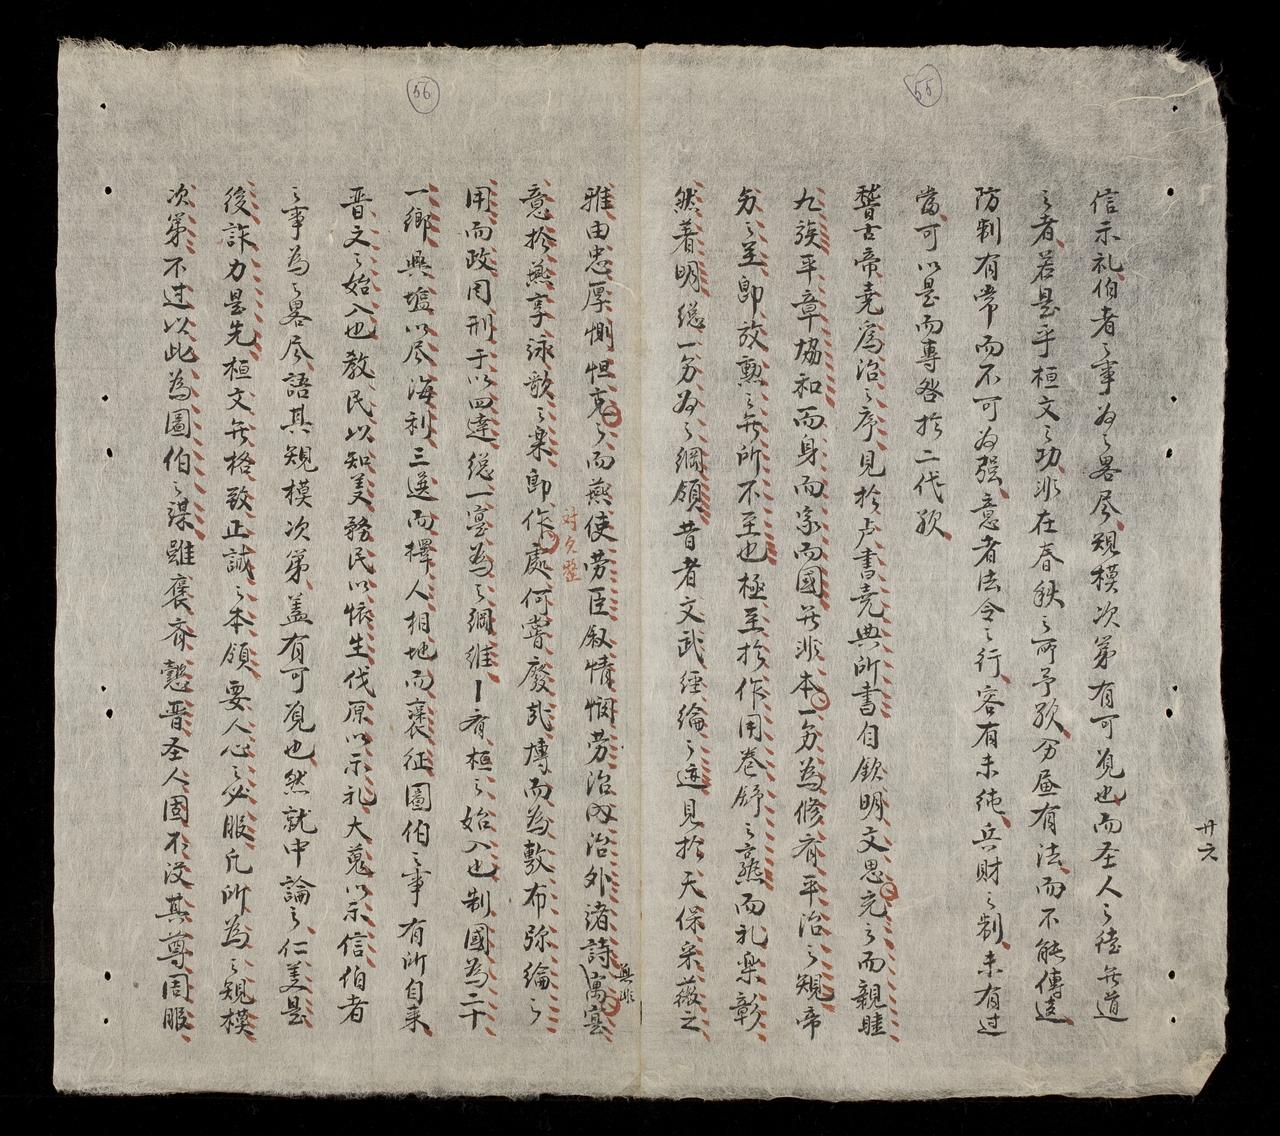 55
信示礼伯者之事為之畧尽規模次第有可覓也而圣人之徒無道
之者若是乎桓文之功非在春秋之所予欤分画有法而不能傳遠
防制有常而不可為强意者法令之行容有未純兵財之制未有过
當可以是而專咎於二代欤
誓古帝堯為治之序見於卢書堯典所書自欽明文思充之而親睦
九族平章協和而身而家而國無非本一分為修齊平治之規帝
分之至即放勲之無所不至也極至於作用卷舒之蘊而礼楽彰
然著明總一分為之綱領昔者文武經綸之迹見於天保采薇之
廿六
56
雅由忠厚惻怛克之而燕使劳臣叙情悯劳治内治外诸詩寓宴
真非
意於燕享泳歌之楽即作處何嘗廢弐慱而為敷布弥綸之
対欠整
用而政用刑于以四達總一宴為之綱維有桓之始入也制國為二十
一鄉興塩以尽海利三選而擇人相地而褒征圖伯之事有所自来
晋文之始入也教民以知羙務民以懐生伐原以示礼大蒐以示信伯者
之事為之畧尽語其規模次第盖有可覓也然就中論之仁羙是
後詐力是先桓文無格致正誠之本領要人心之必服凢所為之規模
次第不过以此為圖伯之謀雖褒齐懿晋圣人固不没其尊周服